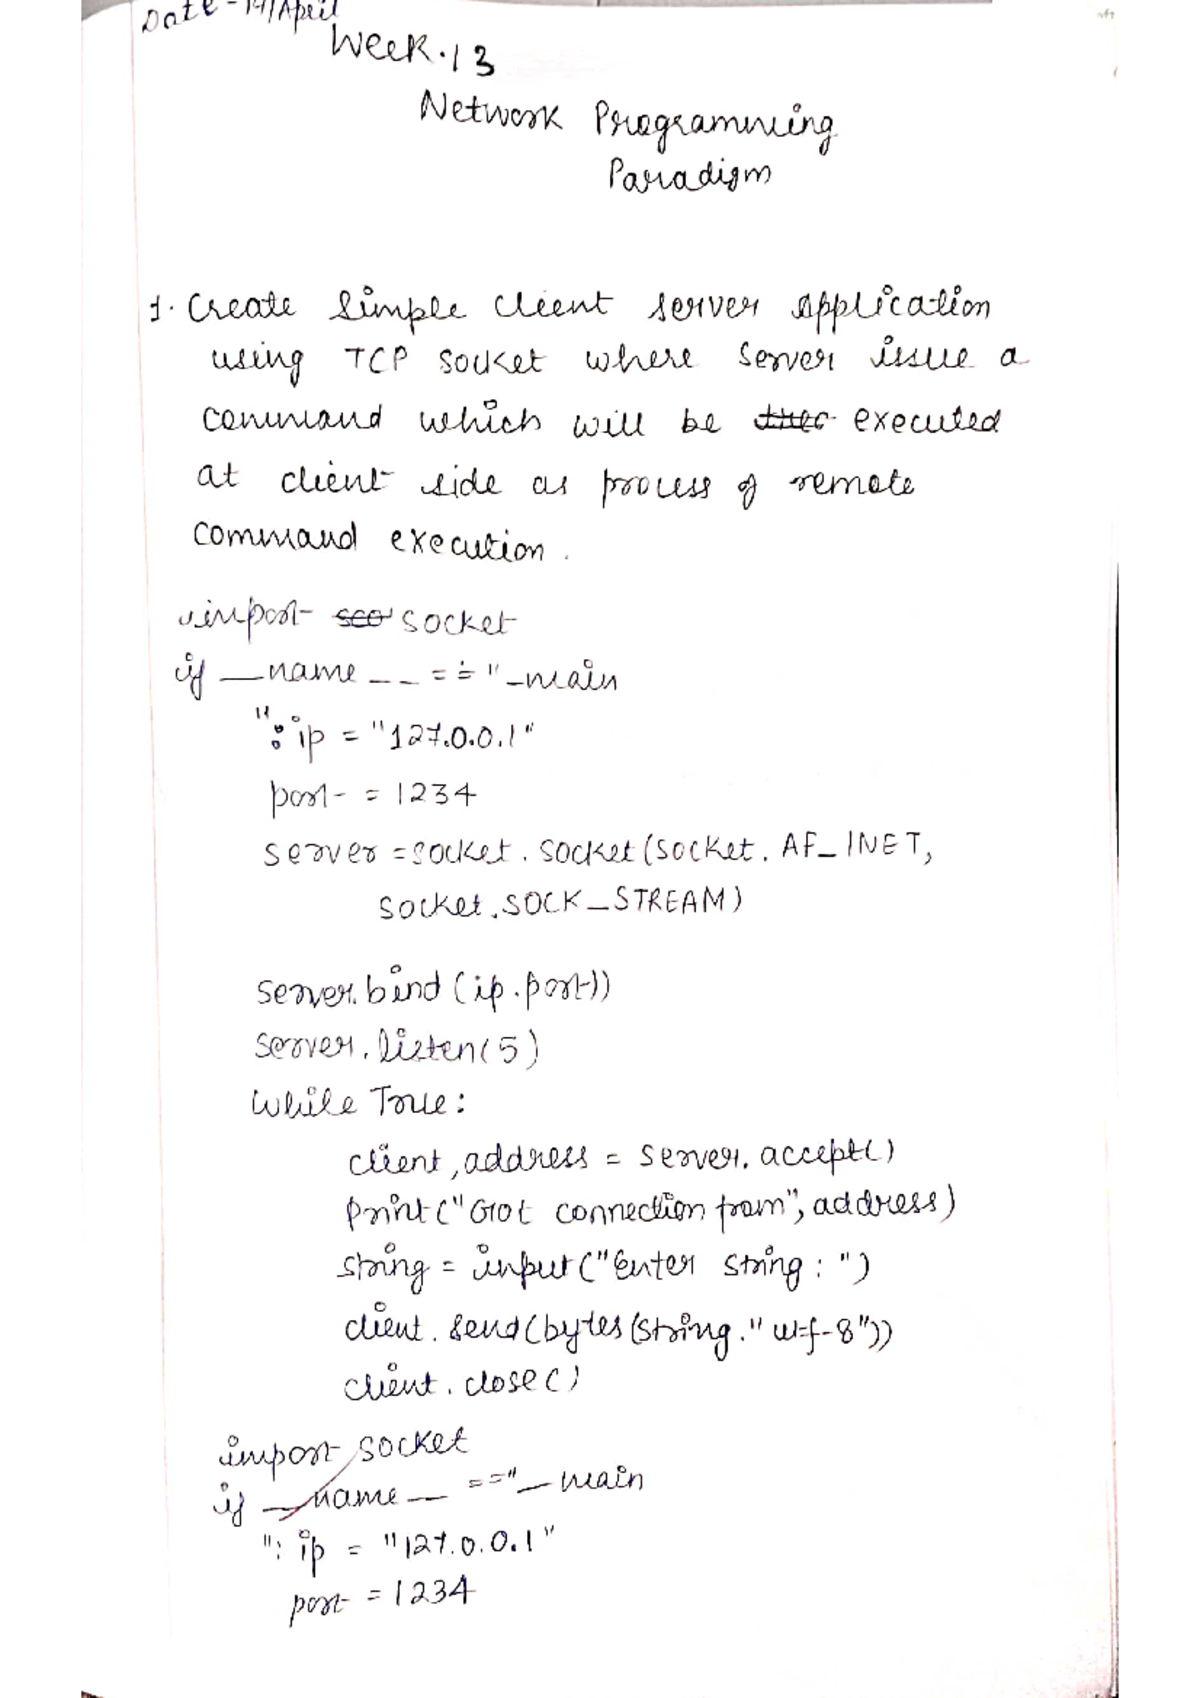 Date - 14/April
Week.13
Network Programming
Paradigm
1. Create Simple Client server Application
using TCP socket where Server issue a
command which will be executed
at client side as process of remote
command execution.
import socket
if __name__ == "_main
": ip = "127.0.0.1"
port = 1234
server = socket.socket(socket.AF_INET,
socket.SOCK_STREAM)
server.bind(ip.port))
server.listen(5)
While True:
client,address = server.accept()
print("Got connection from", address)
string = input("Enter string: ")
client.send(bytes(string."utf-8"))
client.close()
import socket
if __name__ == "_main
": ip = "127.0.0.1"
port = 1234